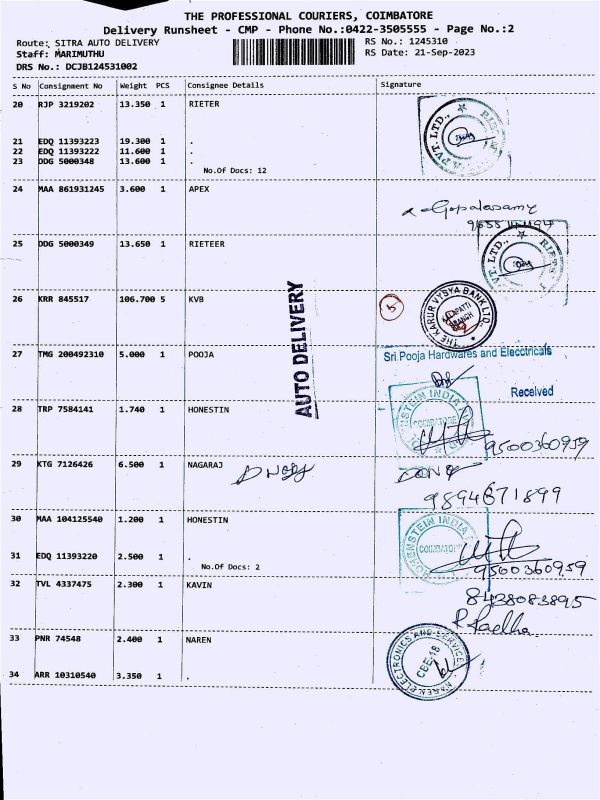 THE PROFESSIONAL COURIERS, COIMBATORE
Delivery Runsheet - CMP - Phone No.:0422-3505555 - Page No.:2
Route: SITRA AUTO DELIVERY
RS No.: 1245310
Staff: MARIMUTHU
RS Date: 21-Sep-2023
DRS No.: DCJB124531002
S No Consignment No Weight PCS Consignee Details Signature
20 RJP 3219202 13.350 1 RIETER
21 EDQ 11393223 19.300 1 .
22 EDQ 11393222 11.600 1 .
23 DDG 5000348 13.600 1 .
No.Of Docs: 12
PVT. LTD.,
24 MAA 861931245 3.600 1 APEX
Gopalasamy
25 DDG 5000349 13.650 1 RIETEER
VT. LTD.,
26 KRR 845517 106.700 5 KVB
5
THE KARUR VYSYA BANK LTD.
BRANCH
AUTO DELIVERY
27 TMG 200492310 5.000 1 POOJA
Sri.Pooja Hardwares and Elecctricals
Received
28 TRP 7584141 1.740 1 HONESTIN
HOHENSTEIN INDIA
COIMBATORE
9500360959
29 KTG 7126426 6.500 1 NAGARAJ
9894671899
30 MAA 104125540 1.200 1 HONESTIN
HOHENSTEIN INDIA
COIMBATORE
31 EDQ 11393220 2.500 1 .
No.Of Docs: 2
9500360959
32 TVL 4337475 2.300 1 KAVIN
8428083895
P. Radha.
33 PNR 74548 2.400 1 NAREN
NAREN ELECTRONICS AND SERVICE
CBE-18
34 ARR 10310540 3.350 1 .